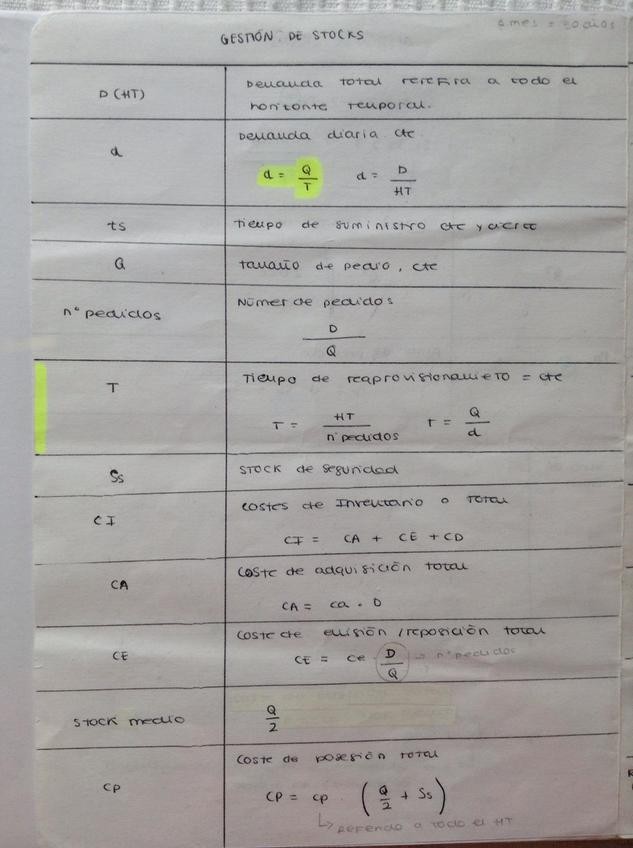 6 mes = 30 dias
GESTIÓN DE STOCKS
D (HT)
Demanda total referida a todo el
horizonte temporal.
d
Demanda diaria cte
d = Q/T d = D/HT
ts
Tiempo de suministro cte y cierto
Q
tamaño de pedio, cte
nº pedidos
Númer de pedidos
D/Q
T
Tiempo de reaprovisionamieto = cte
T = HT/nº pedidos T = Q/d
Ss
STOCK de seguridad
CI
costes de Inventario o Total
CI = CA + CE + CD
CA
Coste de adquisición total
CA = ca · D
CE
Coste de emisión / reposición total
CE = ce D/Q → nº pedidos
STOCK medio
Q/2
CP
Coste de posesión total
CP = cp · (Q/2 + Ss)
↳ referido a todo el HT